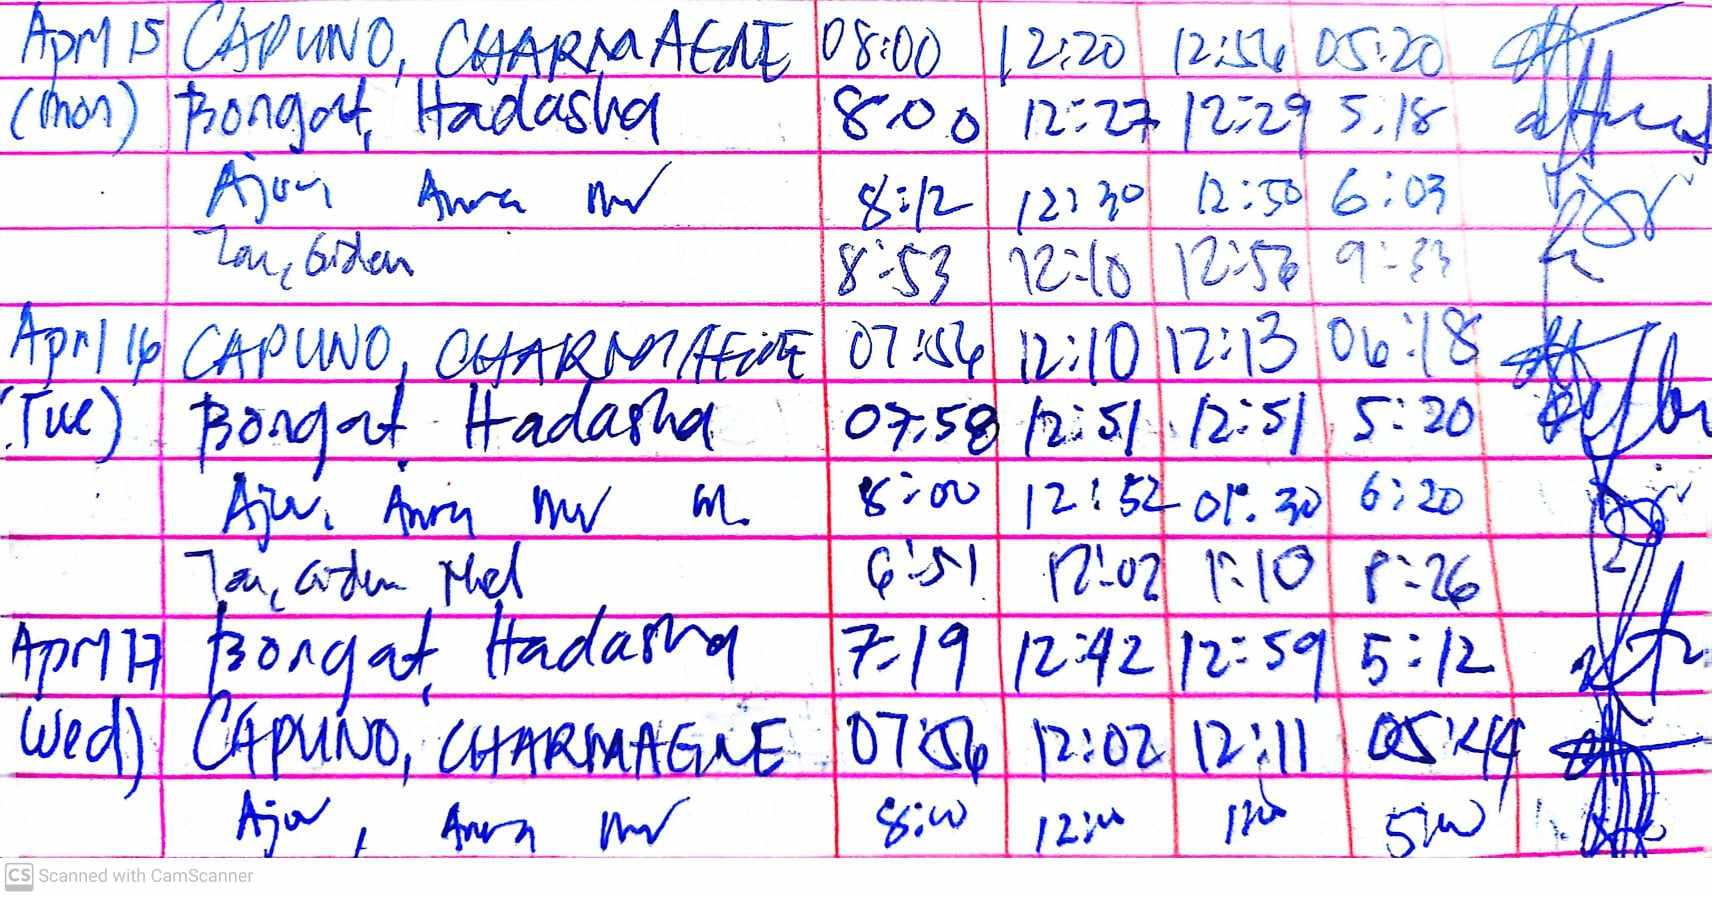 April 15 CAPUNO, CHARMAGNE 08:00 12:20 12:56 05:20
(Mon) Bongat, Hadasha 8:00 12:27 12:29 5:18
8:12 12:30 12:50 6:03
8:53 12:10 12:56 9:33
April 16 CAPUNO, CHARMAGNE 07:56 12:10 12:13 06:18
(Tue) Bongat, Hadasha 07:58 12:51 12:51 5:20
8:00 12:52 01:30 6:20
6:51 12:02 1:10 8:26
April 17 Bongat, Hadasha 7:19 12:42 12:59 5:12
Wed) CAPUNO, CHARMAGNE 07:56 12:02 12:11 05:44
8:00 12:00 1:00 5:00
CS Scanned with CamScanner